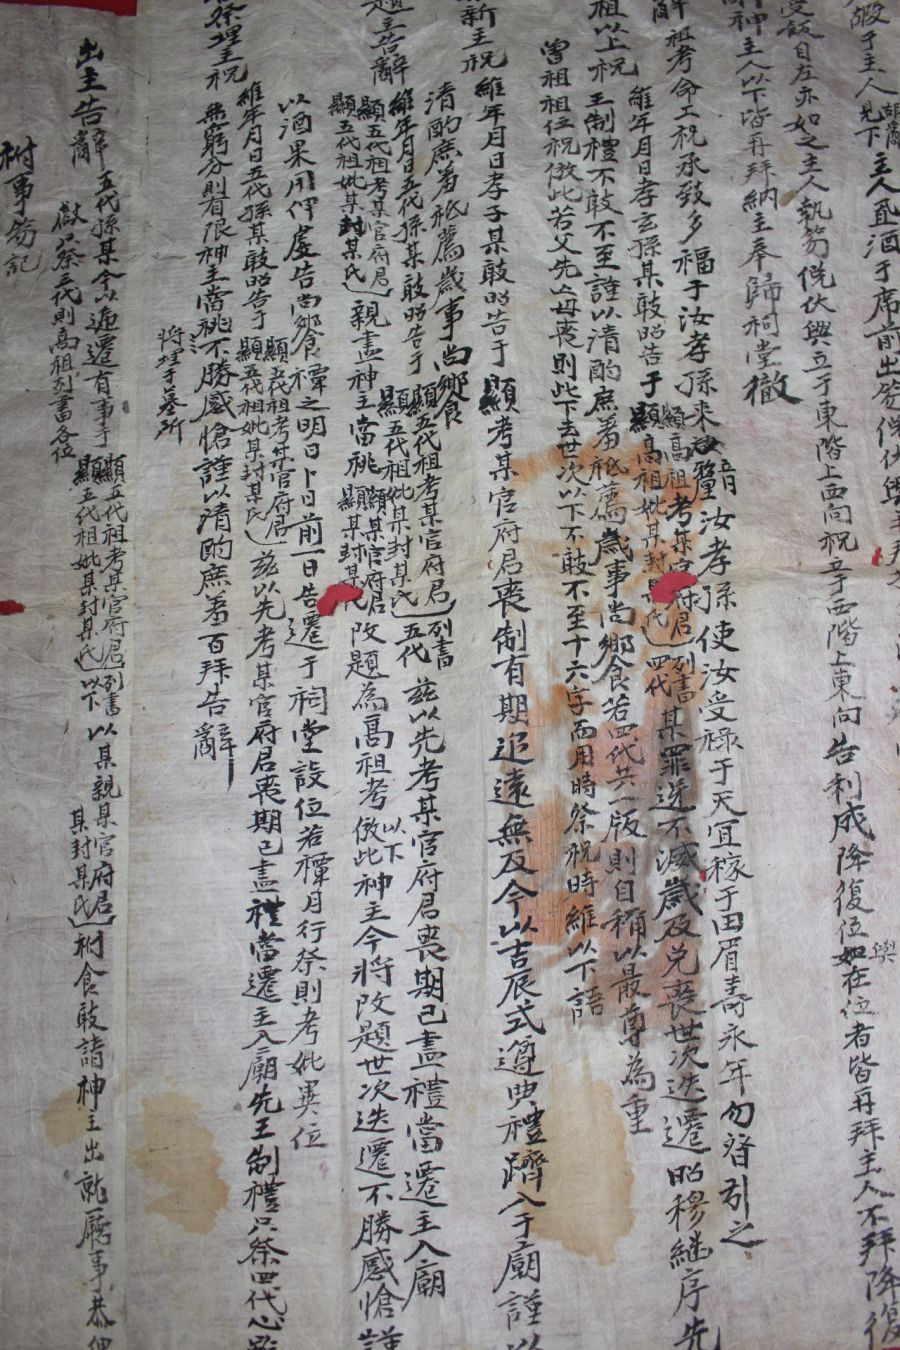 嘏于主人 胡蕭見下 主人 酒于席前出笏俛伏興
受飯自左亦如之主人執笏俛伏興立于東階上西向祝立于西階上東向告利成降復位 興 如在位者皆再拜主人不拜降復
神主人以下皆再拜納主奉歸祠堂徹
嘏辭 祖考命工祝承致多福于汝孝孫來汝孝孫使汝受祿于天宜稼于田眉壽永年勿替引之
祖以上祝 維年月日孝玄孫某敢昭告于 顯高祖考某官府君 顯高祖妣某封某氏 列書四代 某罪逆不滅歲及免喪世次迭遷昭穆繼序先
王制禮不敢不至謹以清酌庶羞祗薦歲事尙饗若四代共一版則自稱以最尊為重
曾祖祖位祝倣此若父先亡母喪則此下去世次以下不敢不至十六字而用時祭祝時維以下語
新主祝 維年月日孝子某敢昭告于 顯考某官府君喪制有期追遠無及今以吉辰式遵典禮躋入于廟謹以
清酌庶羞祗薦歲事尙饗
題主告辭 維年月日五代孫某敢昭告于 顯五代祖考某官府君 顯五代祖妣某封某氏 列書五代 玆以先考某官府君喪期已盡禮當遷主入廟
顯五代祖考某官府君 顯五代祖妣某封某氏 親盡神主當祧 顯某官府君 顯某封某氏 改題為高祖考 以下倣此 神主今將改題世次迭遷不勝感愴謹
以酒果用伸虔告尙饗 禫之明日卜日前一日告遷于祠堂設位若禫月行祭則考妣異位
祭埋主祝 維年月日五代孫某敢昭告于 顯五代祖考某官府君 顯五代祖妣某封某氏 玆以先考某官府君喪期已盡禮當遷主入廟先王制禮只祭四代心雖
無窮分則有限神主當祧 將埋于墓所 不勝感愴謹以清酌庶羞百拜告辭
出主告辭 五代孫某今以遞遷有事于 顯五代祖考某官府君 顯五代祖妣某封某氏 列書以下 以某親某官府君 某封某氏 祔食敢請神主出就廳事恭伸
獻只祭三代則高祖列書各位
祔事笏記